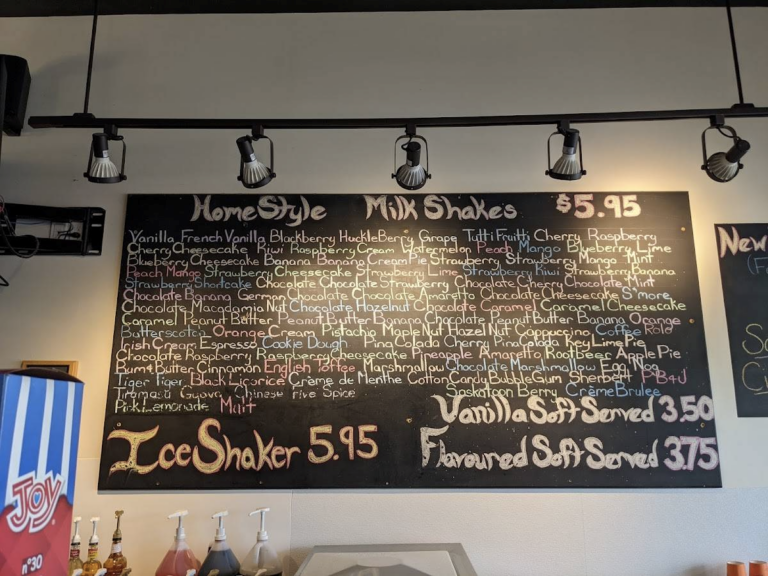 HomeStyle Milk Shakes $5.95
Vanilla French Vanilla Blackberry HuckleBerry Grape Tutti Fruitti Cherry Raspberry
Cherry Cheesecake Kiwi Raspberry Cream Watermelon Peach Mango Blueberry Lime
Blueberry Cheesecake Banana Banana Cream Pie Strawberry Strawberry Mango Mint
Peach Mango Strawberry Cheesecake Strawberry Lime Strawberry Kiwi Strawberry Banana
Strawberry Shortcake Chocolate Chocolate Strawberry Chocolate Cherry Chocolate Mint
Chocolate Banana German Chocolate Chocolate Amaretto Chocolate Cheesecake S'more
Chocolate Macadamia Nut Chocolate Hazelnut Chocolate Caramel Caramel Cheesecake
Caramel Peanut Butter Peanut Butter Banana Chocolate Peanut Butter Banana Orange
Butterscotch Orange Cream Pistachio Maple Nut Hazel Nut Cappuccino Coffee Rolo
Irish Cream Espresso Cookie Dough Pina Colada Cherry Pina Colada Key Lime Pie
Chocolate Raspberry Raspberry Cheesecake Pineapple Amaretto Rootbeer Apple Pie
Rum & Butter Cinnamon English Toffee Marshmallow Chocolate Marshmallow Egg Nog
Tiger Tiger Black Licorice Crème de Menthe Cotton Candy Bubble Gum Sherbert PB&J
Tiramisu Guava Chinese Five Spice Saskatoon Berry Crème Brulee
Pink Lemonade Malt
Vanilla Soft Served 3.50
Ice Shaker 5.95
Flavoured Soft Served 3.75
New
JOY
n°30